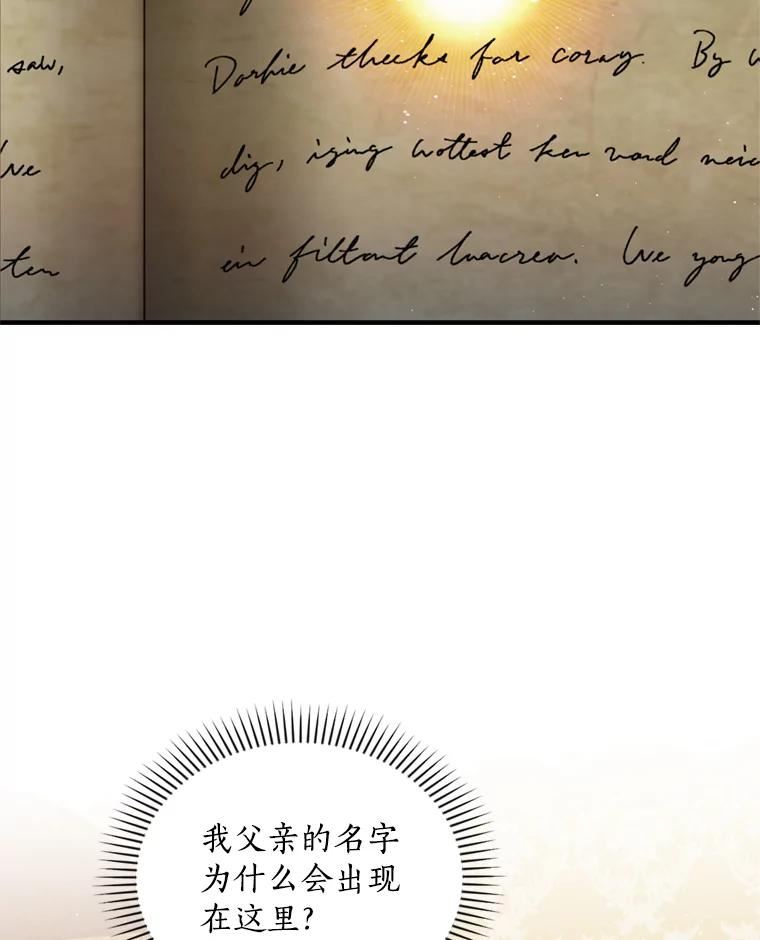 saw,
Dorhie thecks for coray. By
dig, iging wottest ken vard
've
in filtont luacrew. We yong
ten
我父亲的名字
为什么会出现
在这里?